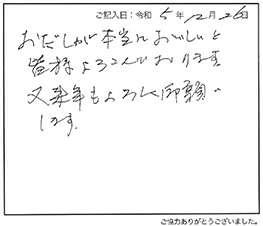 ご記入日：令和 5 年 12 月 26 日
おだしが本当においしいと
皆様よろこんでおります。
又来年もよろしく御願い
します。
ご協力ありがとうございました。